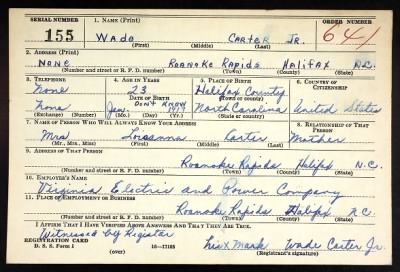 SERIAL NUMBER 1. NAME (Print) ORDER NUMBER
155 Wade Carter Jr. 641
(First) (Middle) (Last)
2. ADDRESS (Print)
None Roanoke Rapids Halifax N.C.
(Number and street or R. F. D. number) (Town) (County) (State)
3. TELEPHONE 4. AGE IN YEARS 5. PLACE OF BIRTH 6. COUNTRY OF CITIZENSHIP
None 23 Halifax County
DATE OF BIRTH (Town or county)
None Jan. Don't Know 1917 North Carolina United States
(Exchange) (Number) (Mo.) (Day) (Yr.) (State or country)
7. NAME OF PERSON WHO WILL ALWAYS KNOW YOUR ADDRESS 8. RELATIONSHIP OF THAT PERSON
Mrs Carter Mother
(Mr., Mrs., Miss) (First) (Middle) (Last)
9. ADDRESS OF THAT PERSON
Roanoke Rapids Halifax N.C.
(Number and street or R. F. D. number) (Town) (County) (State)
10. EMPLOYER'S NAME
Virginia Electric and Power Company
11. PLACE OF EMPLOYMENT OR BUSINESS
Roanoke Rapids Halifax N.C.
(Number and street or R. F. D. number) (Town) (County) (State)
I AFFIRM THAT I HAVE VERIFIED ABOVE ANSWERS AND THAT THEY ARE TRUE.
Witnessed by Register
REGISTRATION CARD
D. S. S. Form 1 16-17105 his x mark Wade Carter Jr.
(over) (Registrant's signature)